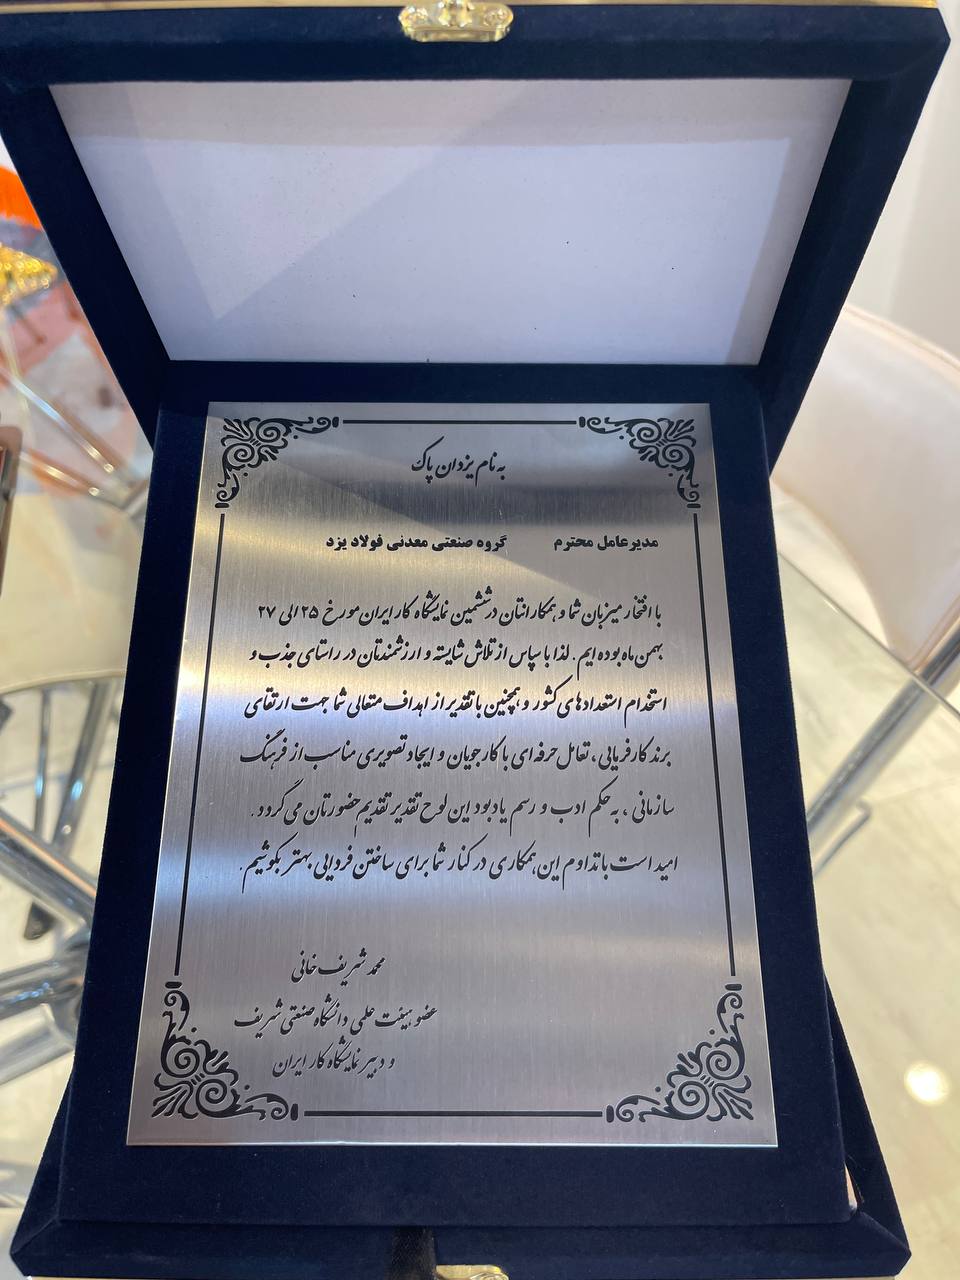 به نام یزدان پاک
مدیرعامل محترم گروه صنعتی معدنی فولاد یزد
با افتخار میزبان شما و همکارانتان در ششمین نمایشگاه کار ایران مورخ ۲۵ الی ۲۷
بهمن ماه بوده ایم. لذا با سپاس از تلاش شایسته و ارزشمندتان در راستای جذب و
استخدام استعدادهای کشور و همچنین با تقدیر از اهداف متعالی شما جهت ارتقای
برند کارفرمایی، تعامل حرفه ای با کارجویان و ایجاد تصویری مناسب از فرهنگ
سازمانی، به حکم ادب و رسم یادبود این لوح تقدیر تقدیم حضورتان می گردد.
امید است با تداوم این همکاری در کنار شما برای ساختن فردایی بهتر بکوشیم.
محمد شریف خانی
عضو هیئت علمی دانشگاه صنعتی شریف
و دبیر نمایشگاه کار ایران